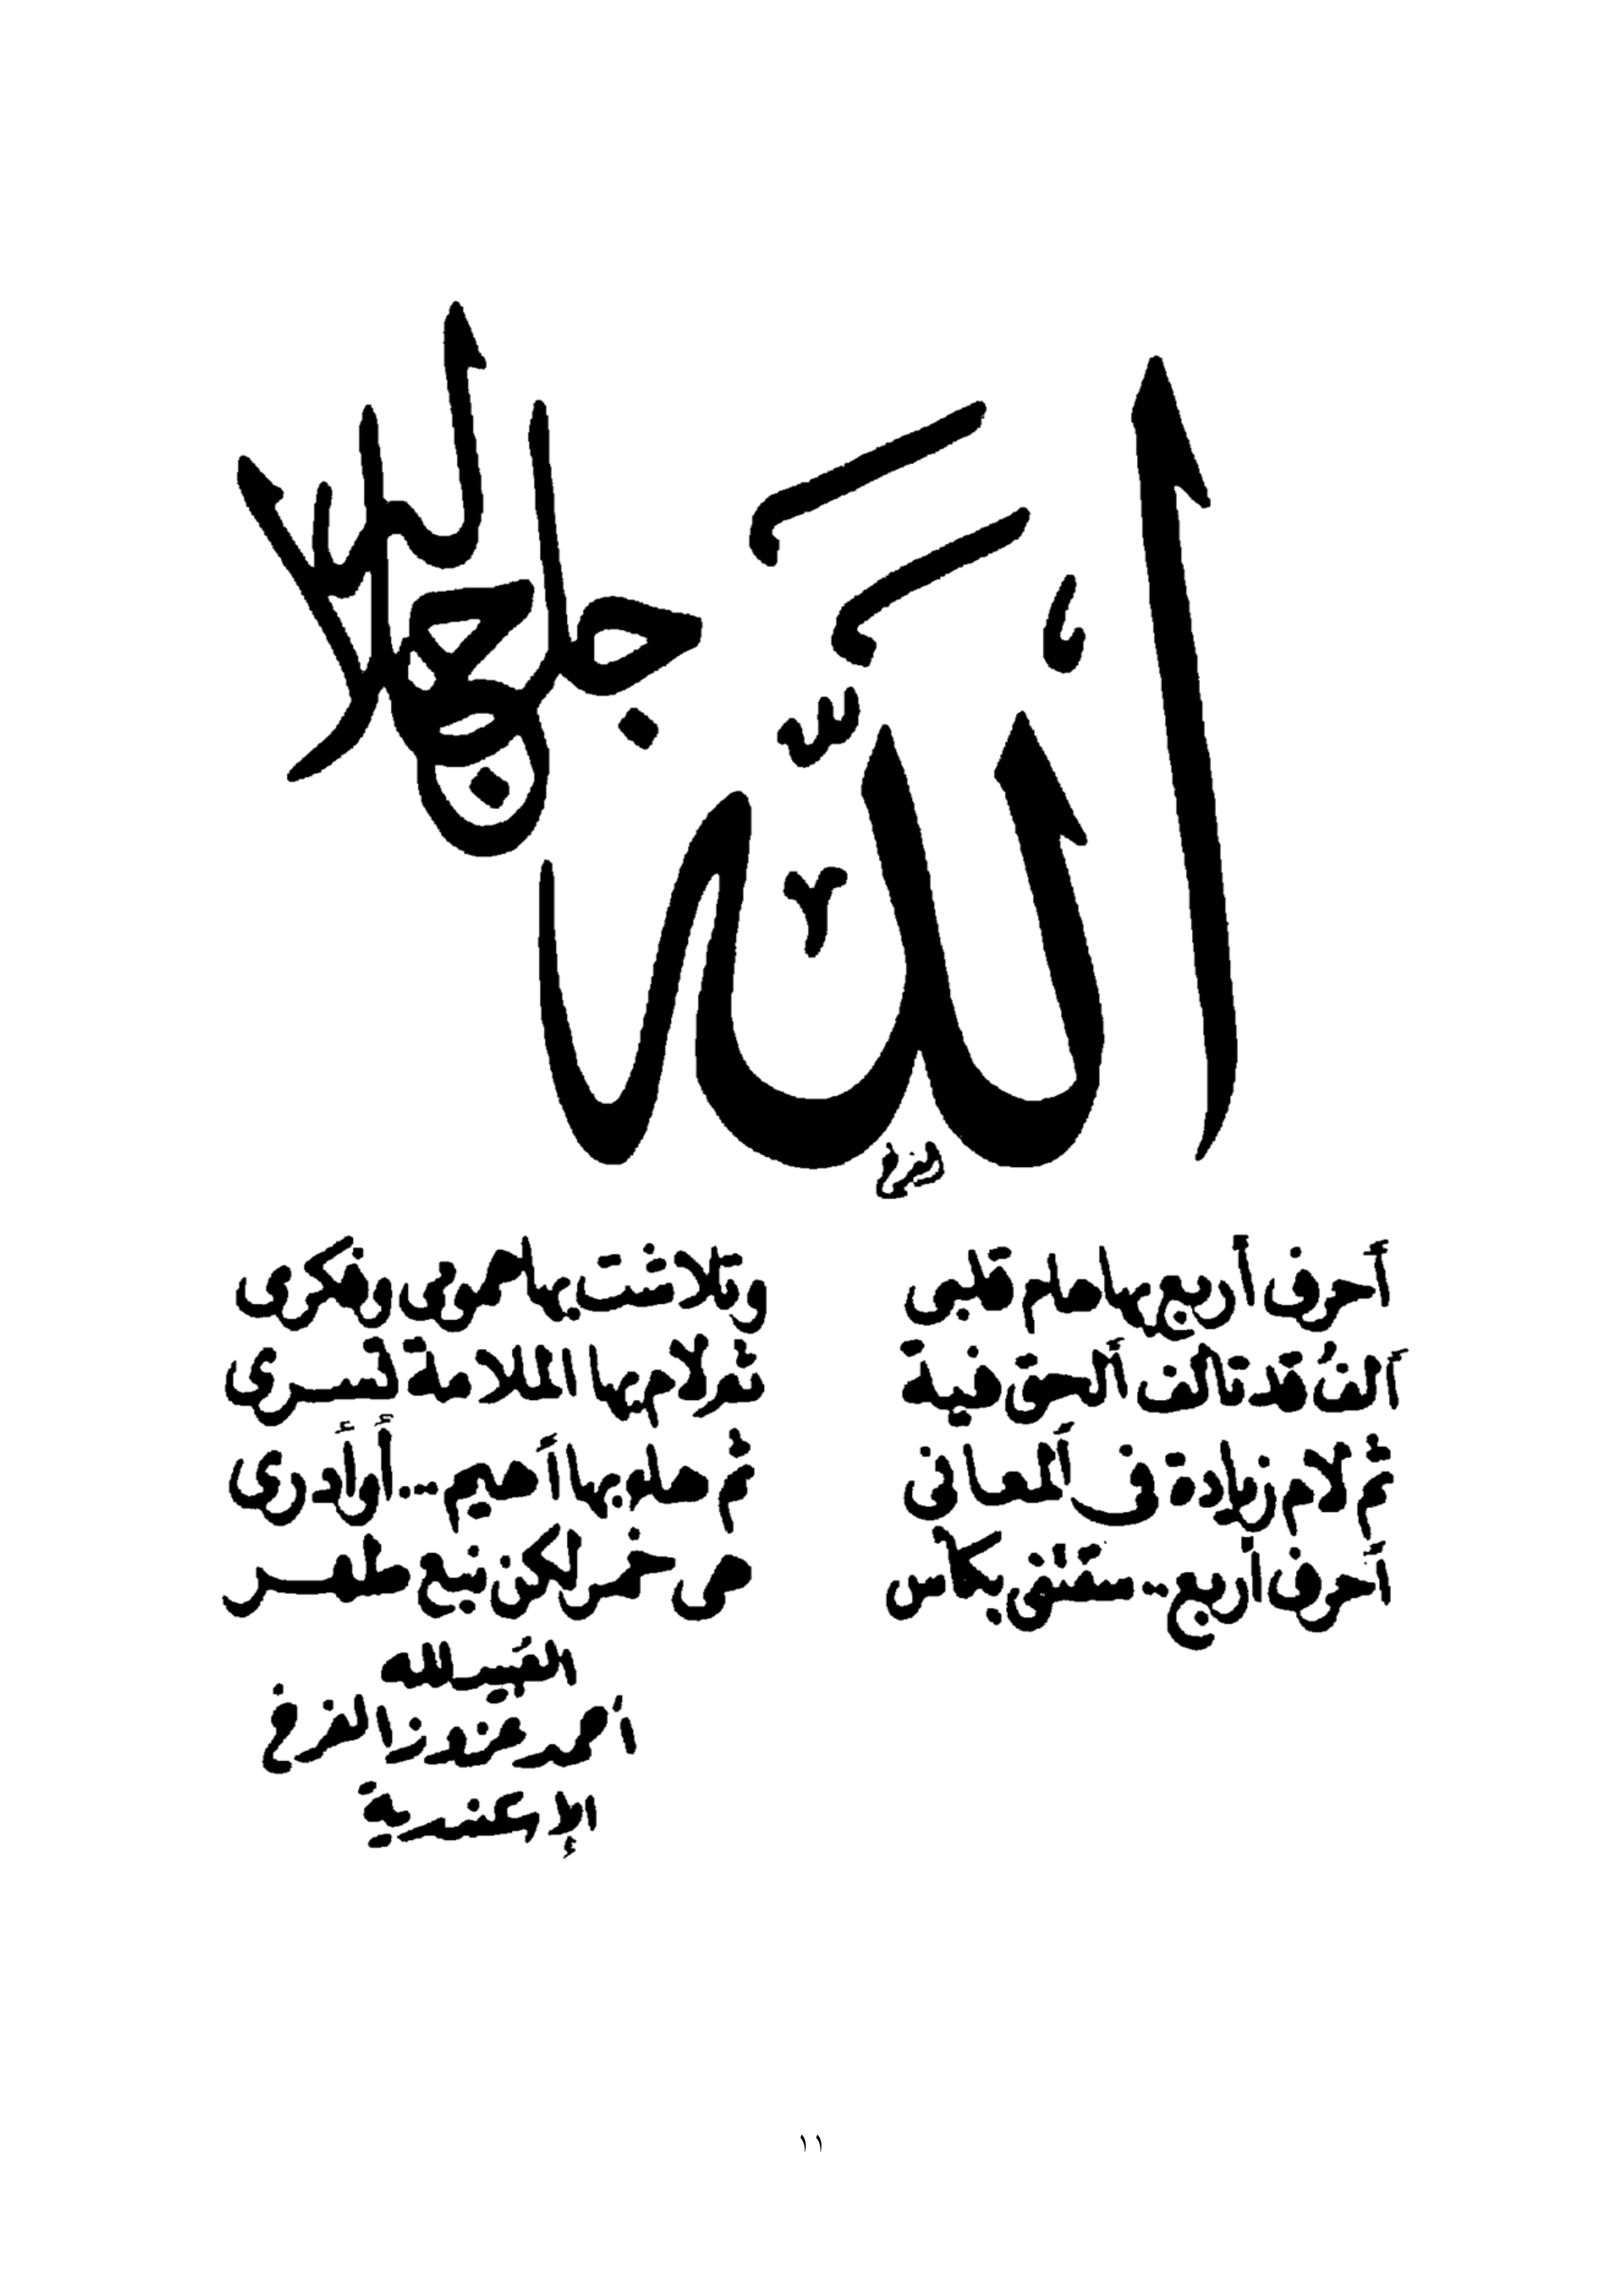 الله جل جلاله
أحرف أربع بها هام قلبى وتلاشت بها همومى وفكرى
ألف قد تألف ألحق فيه ثم لام بها الملامة تسرى
ثم لام زيادة فى ألمعانى ثم هاء بها أهيم .. أو أدرى
أحرف أربع .. ستلتقى بكأس من خمر لكن نبع طهر
الفقير لله
أحمد
الإسكندرية
١١